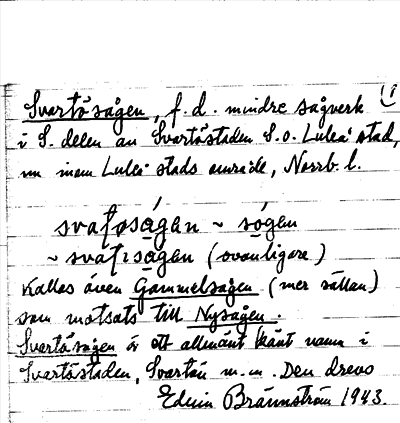 Svartösågen, f.d. mindre sågverk
i S. delen av Svartöstaden S.o. Luleå stad,
nu inom Luleå stads område, Norrb. l.
svaʈøsågen ~ sågen
~ svaʈɪsågen (ovanligare)
Kallas även Gammelsågen (mer sällan)
som motsats till Nysågen.
Svartösågen är ett allmänt känt namn i
Svartöstaden, Svartön m.m. Den drevs
Edvin Brännström 1943.